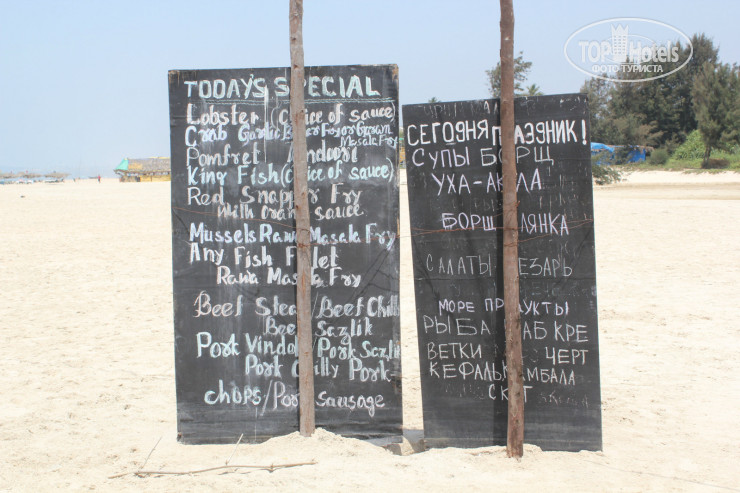 TODAY'S SPECIAL
Lobster (choice of sauce)
Crab Garlic Butter Fry or Garam
Masala Fry
Pomfret Tandoori
King Fish (choice of sauce)
Red Snapper Fry
With sauce.
Mussels Rawa Masala Fry
Any Fish Filet
Rawa Masala Fry
Beef Steak/Beef Chilly
Beef Sazlik
Pork Vindaloo/Pork Sazlik
Pork Chilly Pork-
chops/Pork sausage
СЕГОДНЯ ПРАЗДНИК!
СУПЫ БОРЩ
УХА-АКУЛА
БОРЩ
САЛАТЫ ЦЕЗАРЬ
МОРЕ ПРОДУКТЫ
РЫБА КРАБ КРЕ
ВЕТКИ ЧЕРТ
КЕФАЛЬ КАМБАЛА
СКАТ
TOPHotels
ФОТО ТУРИСТА